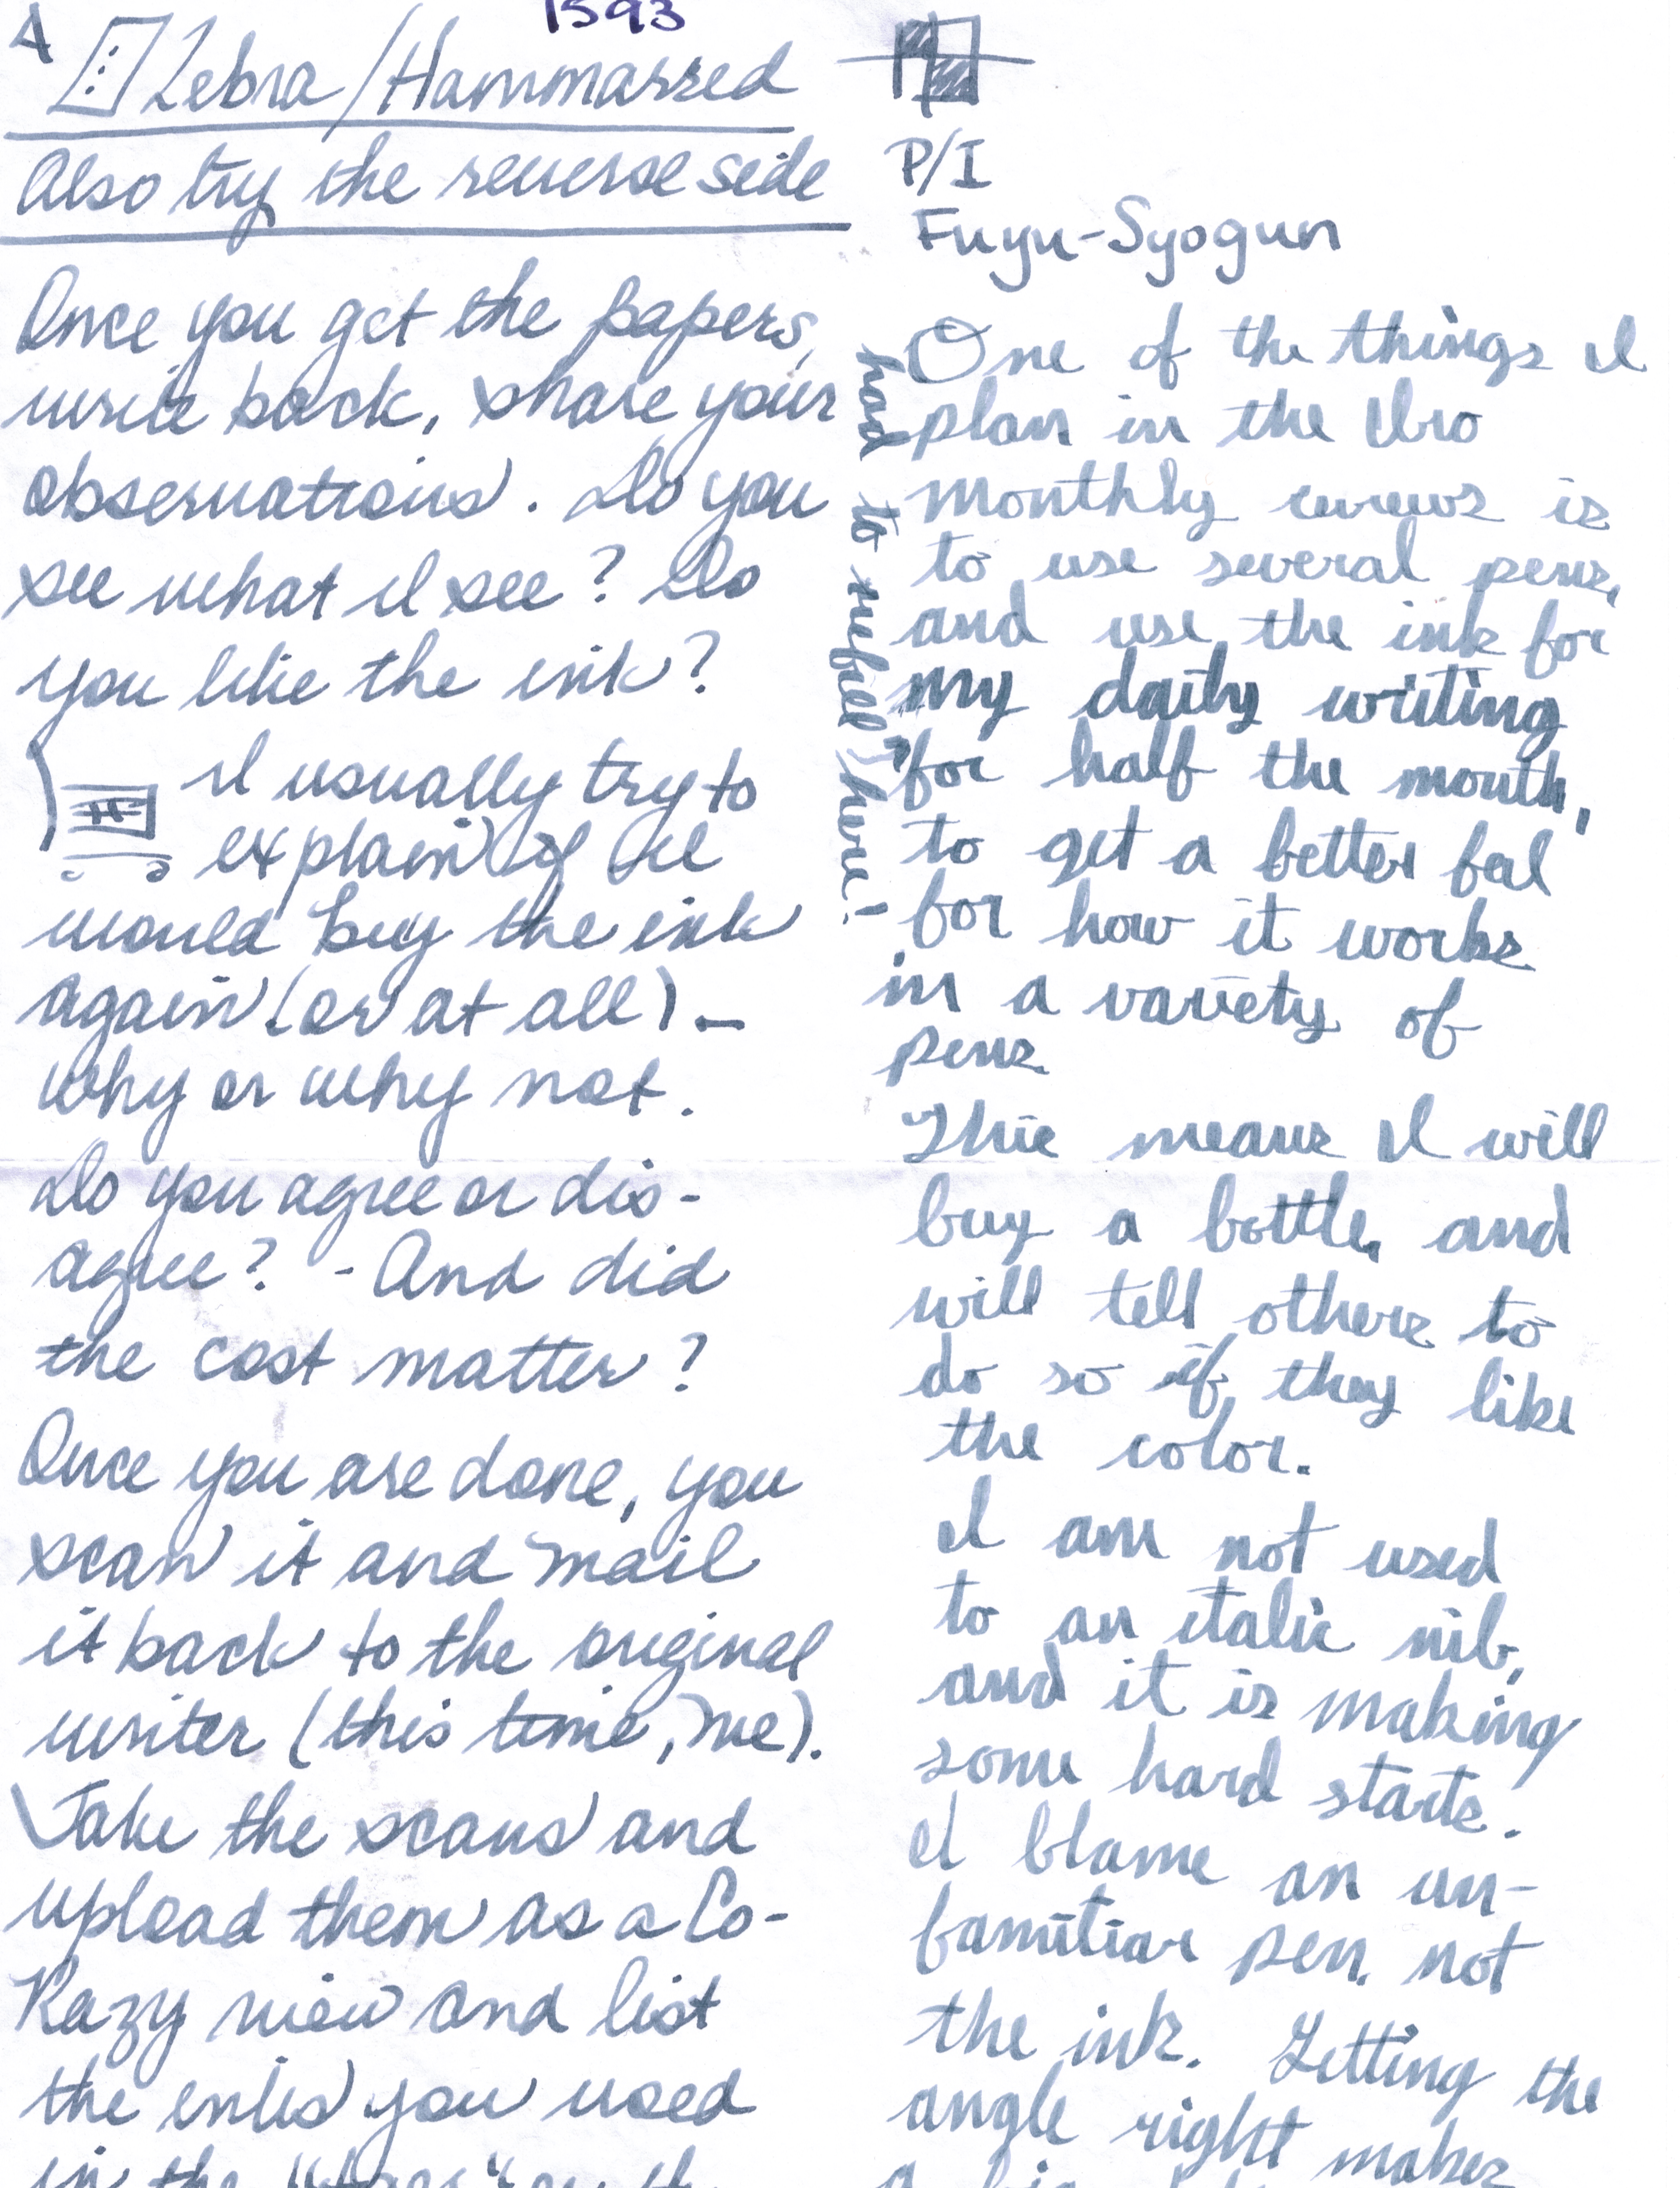 A
1593
Zebra/Hammarred
Also try the reverse side
Once you get the papers,
write back, share your
observations. Do you
see what I see? Do
you like the ink?
I usually try to
explain if I
would buy the ink
again (or at all) –
why or why not.
Do you agree or dis-
agree? - And did
the cost matter?
Once you are done, you
scan it and mail
it back to the original
writer (this time, me).
Take the scans and
upload them as a Co-
Razy view and list
the inks you used
in the "tags" on th
P/I
Fuyu-Syogun
One of the things I
plan in the Iro
monthly reviews is
to use several pens,
and use the ink for
my daily writing
for half the month,
to get a better feel
for how it works
in a variety of
pens
This means I will
buy a bottle, and
will tell others to
do so if they like
the color.
I am not used
to an italic nib,
and it is making
some hard starts.
I blame an un-
familiar pen, not
the ink. Getting the
angle right makes
a big
had to refill here!